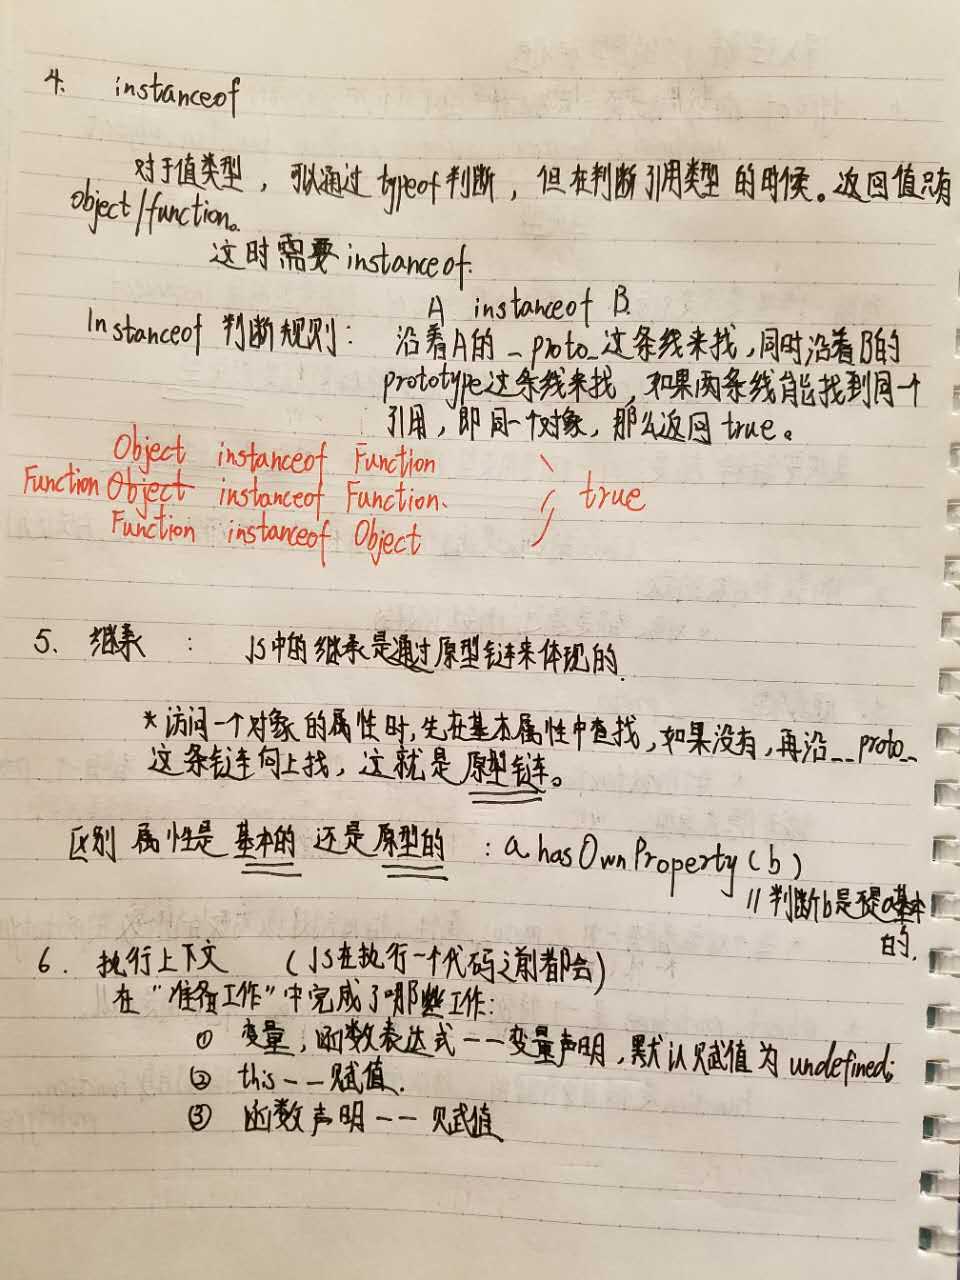 4. instanceof
对于值类型，可以通过typeof判断，但在判断引用类型的时候。返回值只有
object/function。
这时需要instanceof.
A instanceof B.
Instanceof 判断规则： 沿着A的 _proto_这条线来找，同时沿着B的
prototype这条线来找，如果两条线能找到同一个
引用，即同一个对象，那么返回true。
Object instanceof Function
Function Object instanceof Function. true
Function instanceof Object
5. 继承 ： JS中的继承是通过原型链来体现的.
*访问一个对象的属性时,先在基本属性中查找,如果没有,再沿__proto__
这条链向上找，这就是原型链。
区别 属性是基本的 还是原型的 ：a.hasOwnProperty(b)
//判断b是不是a基本
的.
6. 执行上下文 （JS在执行一个代码之前都会）
在“准备工作”中完成了哪些工作:
① 变量，函数表达式——变量声明，默认赋值为undefined;
② this——赋值.
③ 函数声明——赋值